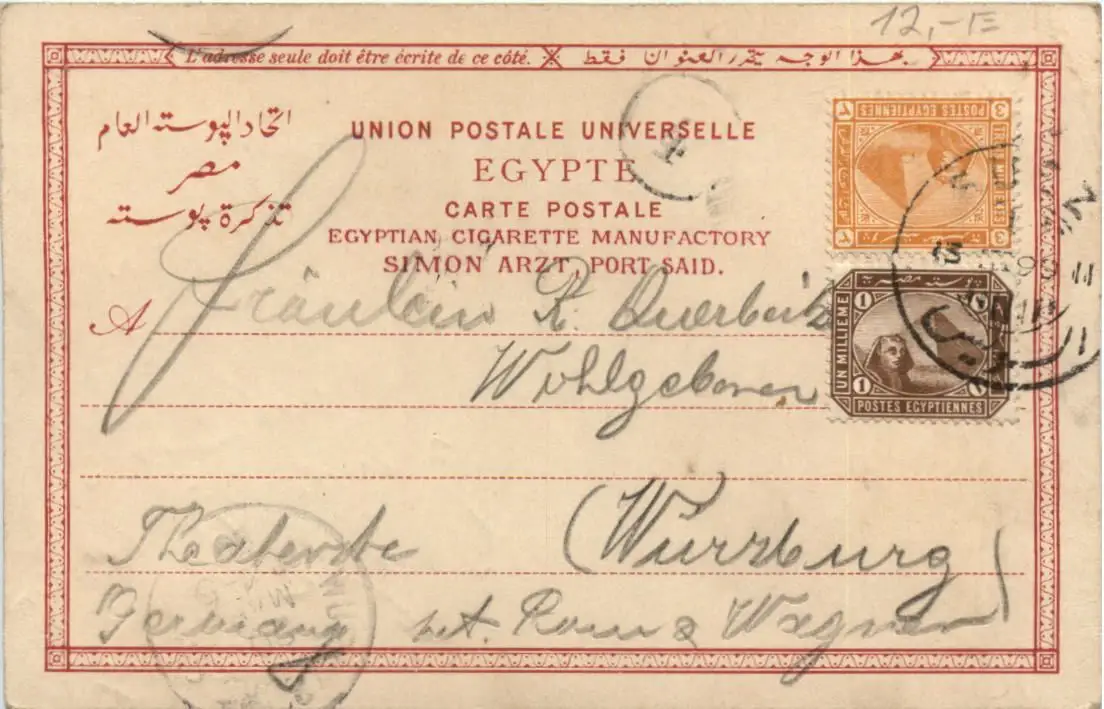 12,-E
L'adresse seule doit être écrite de ce côté. بهذا الوجه يتحرر العنوان فقط
اتحاد البوسته العام
مصر
تذكرة بوسته
UNION POSTALE UNIVERSELLE
EGYPTE
CARTE POSTALE
EGYPTIAN CIGARETTE MANUFACTORY
SIMON ARZT, PORT SAID.
4
POSTES EGYPTIENNES
3
3
UN MILLIEME
1
1
1
POSTES EGYPTIENNES
A Fräulein R.
Wohlgeboren
(Würzburg)
Germany Rom & Wagner